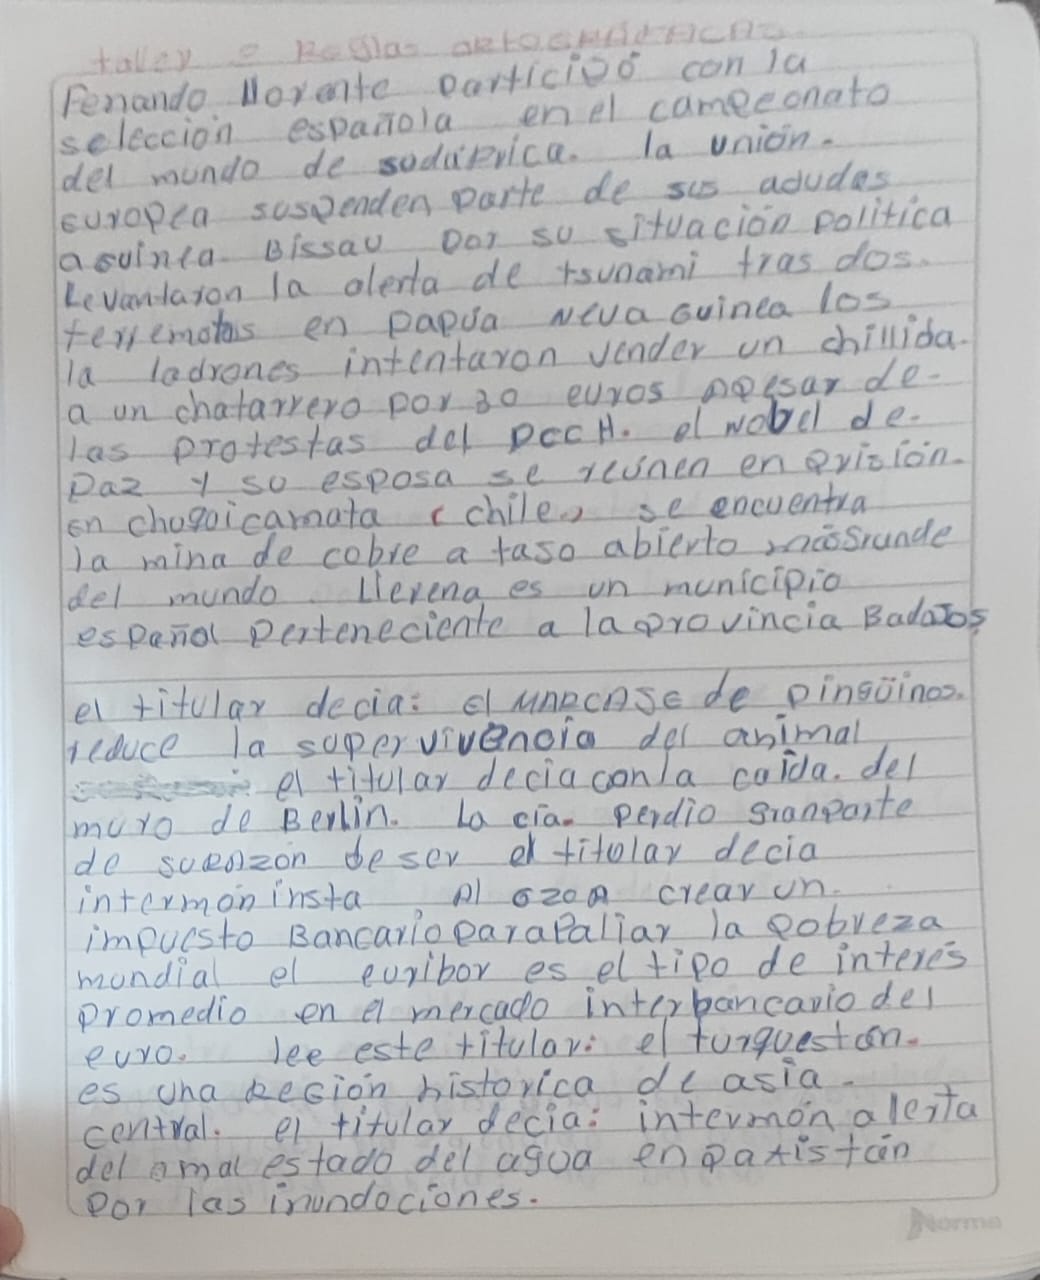 taller = Reglas ORTOGRAFICAS
Fenando Llorente particicipó con la
selección española en el campeonato
del mundo de sudáfrica. la unión.
europea suspenden parte de sus adudas
a guinea Bissau por su situación politica
Levantaron la alerta de tsunami tras dos.
terremotos en papúa Neva Guinea los
la ladrones intentaron vender un chillida.
a un chatarrero por 30 euros apesar de-
las protestas del PCCH. el Nobel de.
paz y su esposa se reúnen en prisión.
en chuquicamata (chile) se encuentra
la mina de cobre a taso abierto más grande
del mundo. Llerena es un municipio
español perteneciente a la provincia Badajos
el titular decia: el MARCAJE de pingüinos.
reduce la super vivencia del animal
el titular decia con la caída. del
muro de Berlin. La cia. perdio gran parte
de su razon de ser el titular decia
intermón insta Al G20 A crear un.
impuesto Bancario para paliar la pobreza
mundial el euribor es el tipo de interés
promedio en el mercado interbancario del
euro. lee este titular: el turquestan.
es una Región historica de asia.
central. el titular decia: intermón alerta
del amal estado del agua en pakistán
por las inundaciones.
Norma